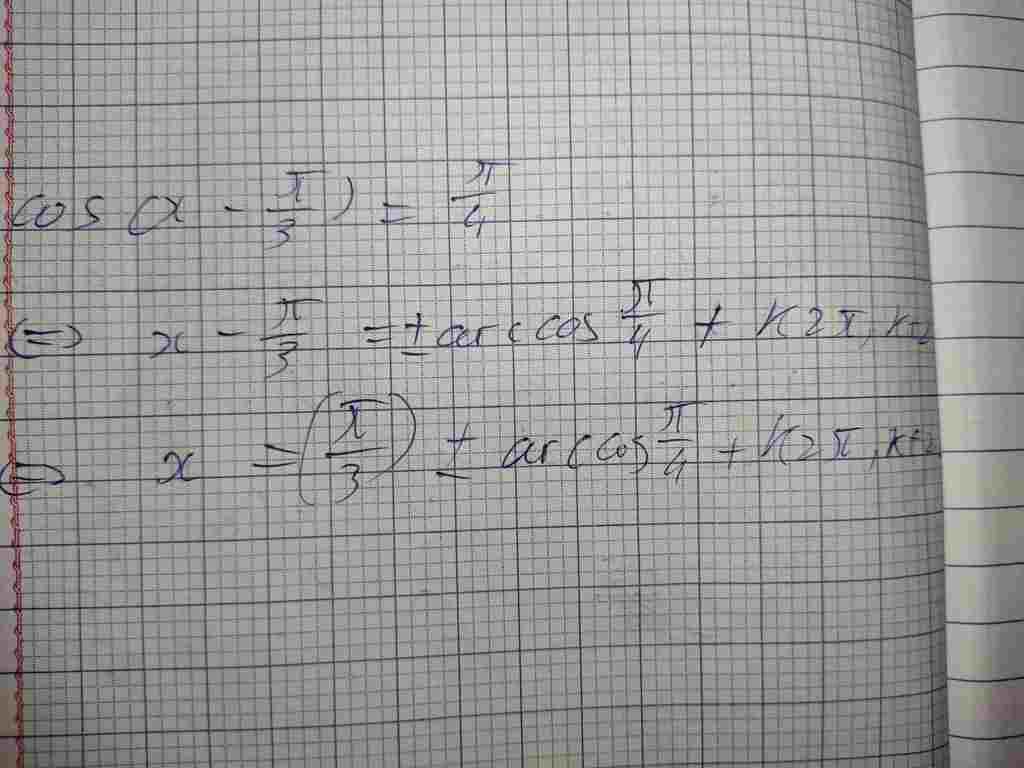 cos (x - π/3) = π/4
(=) x - π/3 = ± arccos π/4 + K2π, K
(=) x = (π/3) ± arccos π/4 + K2π, K